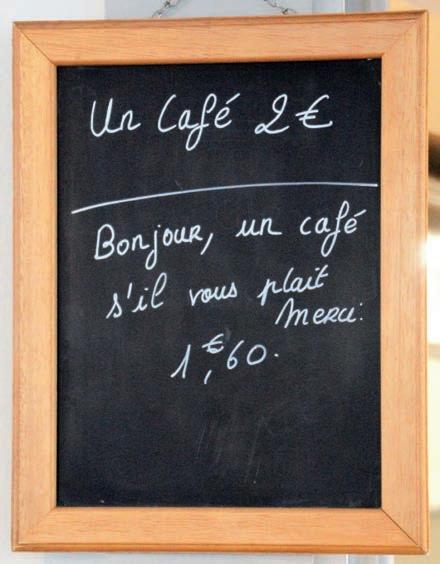 Un Café 2 €
Bonjour, un café
s'il vous plait
Merci.
1,€60.